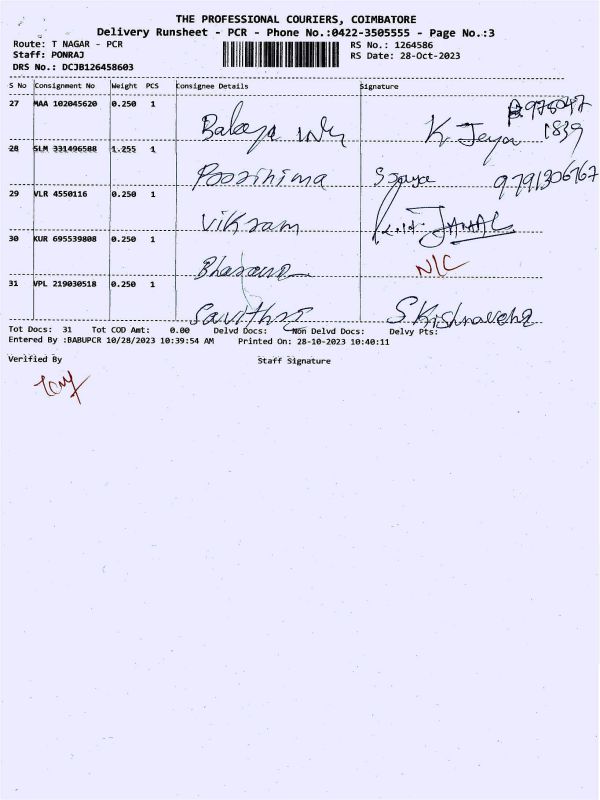 THE PROFESSIONAL COURIERS, COIMBATORE
Delivery Runsheet - PCR - Phone No.:0422-3505555 - Page No.:3
Route: T NAGAR - PCR RS No.: 1264586
Staff: PONRAJ RS Date: 28-Oct-2023
DRS No.: DCJB126458603
S No Consignment No Weight PCS Consignee Details Signature
27 MAA 102045620 0.250 1 K Jeya 1839
28 SLM 331496588 1.255 1 Poorinima S Jaya 9791306767
29 VLR 4550116 0.250 1 Vikram JAMAL
30 KUR 695539808 0.250 1 N/C
31 VPL 219030518 0.250 1 S. Krishnaveha
Tot Docs: 31 Tot COD Amt: 0.00 Delvd Docs: Non Delvd Docs: Delvy Pts:
Entered By :BABUPCR 10/28/2023 10:39:54 AM Printed On: 28-10-2023 10:40:11
Verified By Staff Signature